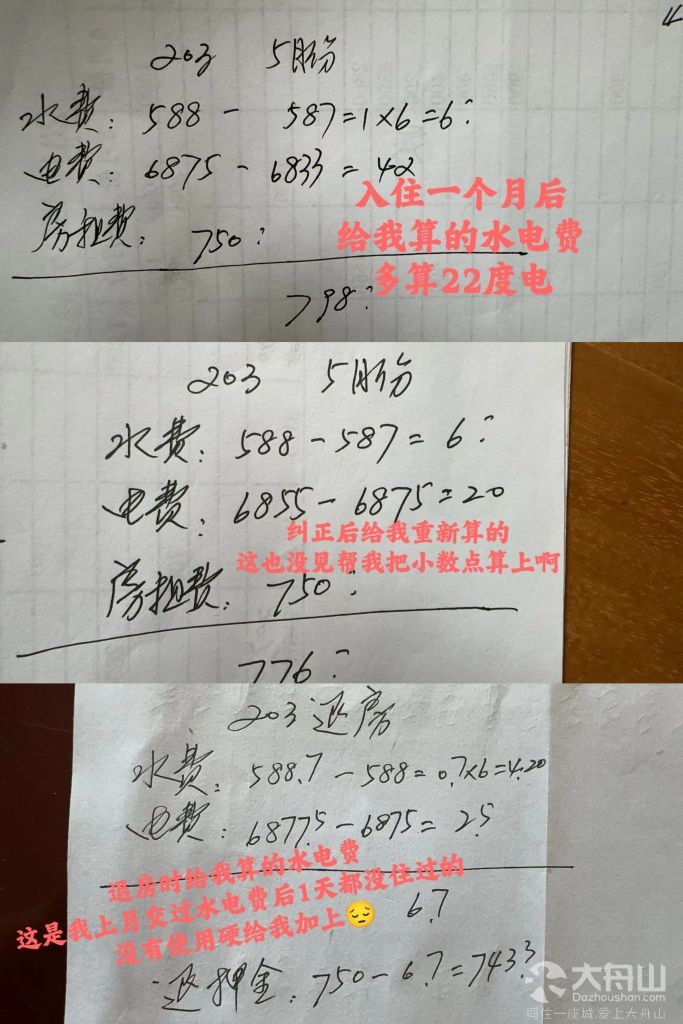 203 5月份
水费: 588 - 587=1×6=6:
电费: 6875 - 6833 = 42
入住一个月后
给我算的水电费
多算22度电
房租费: 750:
798:
203 5月份
水费: 588-587= 6:
电费: 6855-6875=20
纠正后给我重新算的
这也没见帮我把小数点算上啊
房租费: 750:
776:
203 退房
水费: 588.7-588=0.7×6=4.20
电费: 6877.5-6875= 2.5
退房时给我算的水电费
这是我上月交过水电费后1天都没住过的
没有使用硬给我加上😔
6.7
退押金: 750-6.7=743.3
大舟山
Dazhoushan.com
同住一座城,爱上大舟山